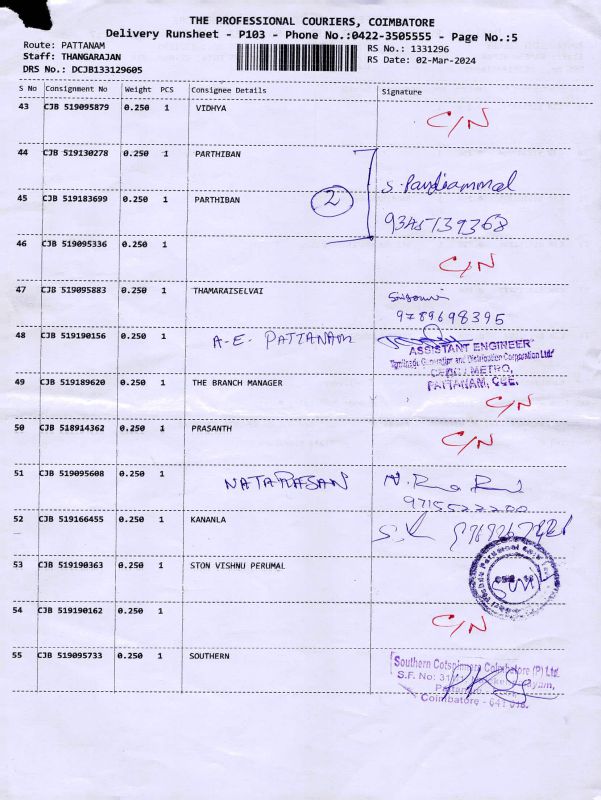 THE PROFESSIONAL COURIERS, COIMBATORE
Delivery Runsheet - P103 - Phone No.:0422-3505555 - Page No.:5
Route: PATTANAM
Staff: THANGARAJAN
DRS No.: DCJB133129605
RS No.: 1331296
RS Date: 02-Mar-2024
S No Consignment No Weight PCS Consignee Details Signature
43 CJB 519095879 0.250 1 VIDHYA C/N
44 CJB 519130278 0.250 1 PARTHIBAN S. Pandiammal
45 CJB 519183699 0.250 1 PARTHIBAN 2 9345139368
46 CJB 519095336 0.250 1 C/N
47 CJB 519095883 0.250 1 THAMARAISELVAI
9789698395
48 CJB 519190156 0.250 1 A-E. PATTANAM
ASSISTANT ENGINEER
Tamilnadu Generation and Distribution Corporation Ltd
METRO,
PATTANAM, CBE.
49 CJB 519189620 0.250 1 THE BRANCH MANAGER C/N
50 CJB 518914362 0.250 1 PRASANTH C/N
51 CJB 519095608 0.250 1 NATARASAN
52 CJB 519166455 0.250 1 KANANLA
53 CJB 519190363 0.250 1 STON VISHNU PERUMAL
54 CJB 519190162 0.250 1 C/N
55 CJB 519095733 0.250 1 SOUTHERN
Southern Cotspinners Coimbatore (P) Ltd.
S.F. No:
Coimbatore - 641 016.